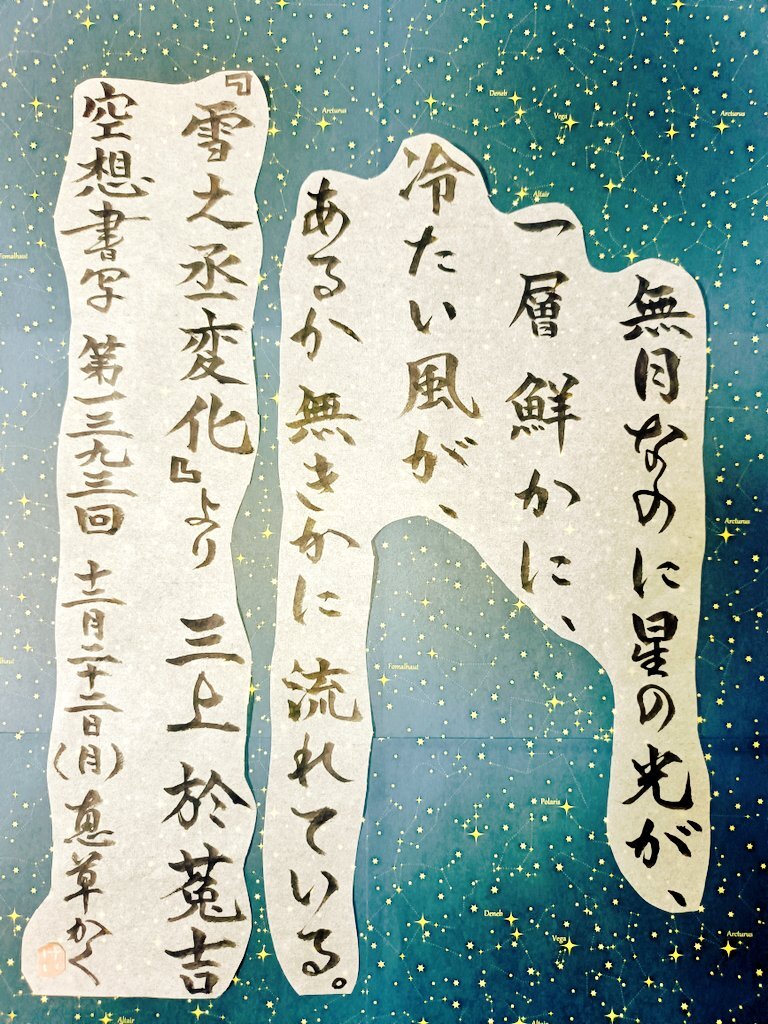 無月なのに星の光が、
一層鮮かに、
冷たい風が、
あるか無きかに流れている。
『雪之丞変化』より 三上於菟吉
空想書写 第一三九三回 十二月二十二日(月) 恵草かく
Deneb
Arcturus
Vega
Arcturus
Altair
Fomalhaut
Arcturus
Fomalhaut
Polaris
Deneb
Vega
Arcturus
Altair
Altair